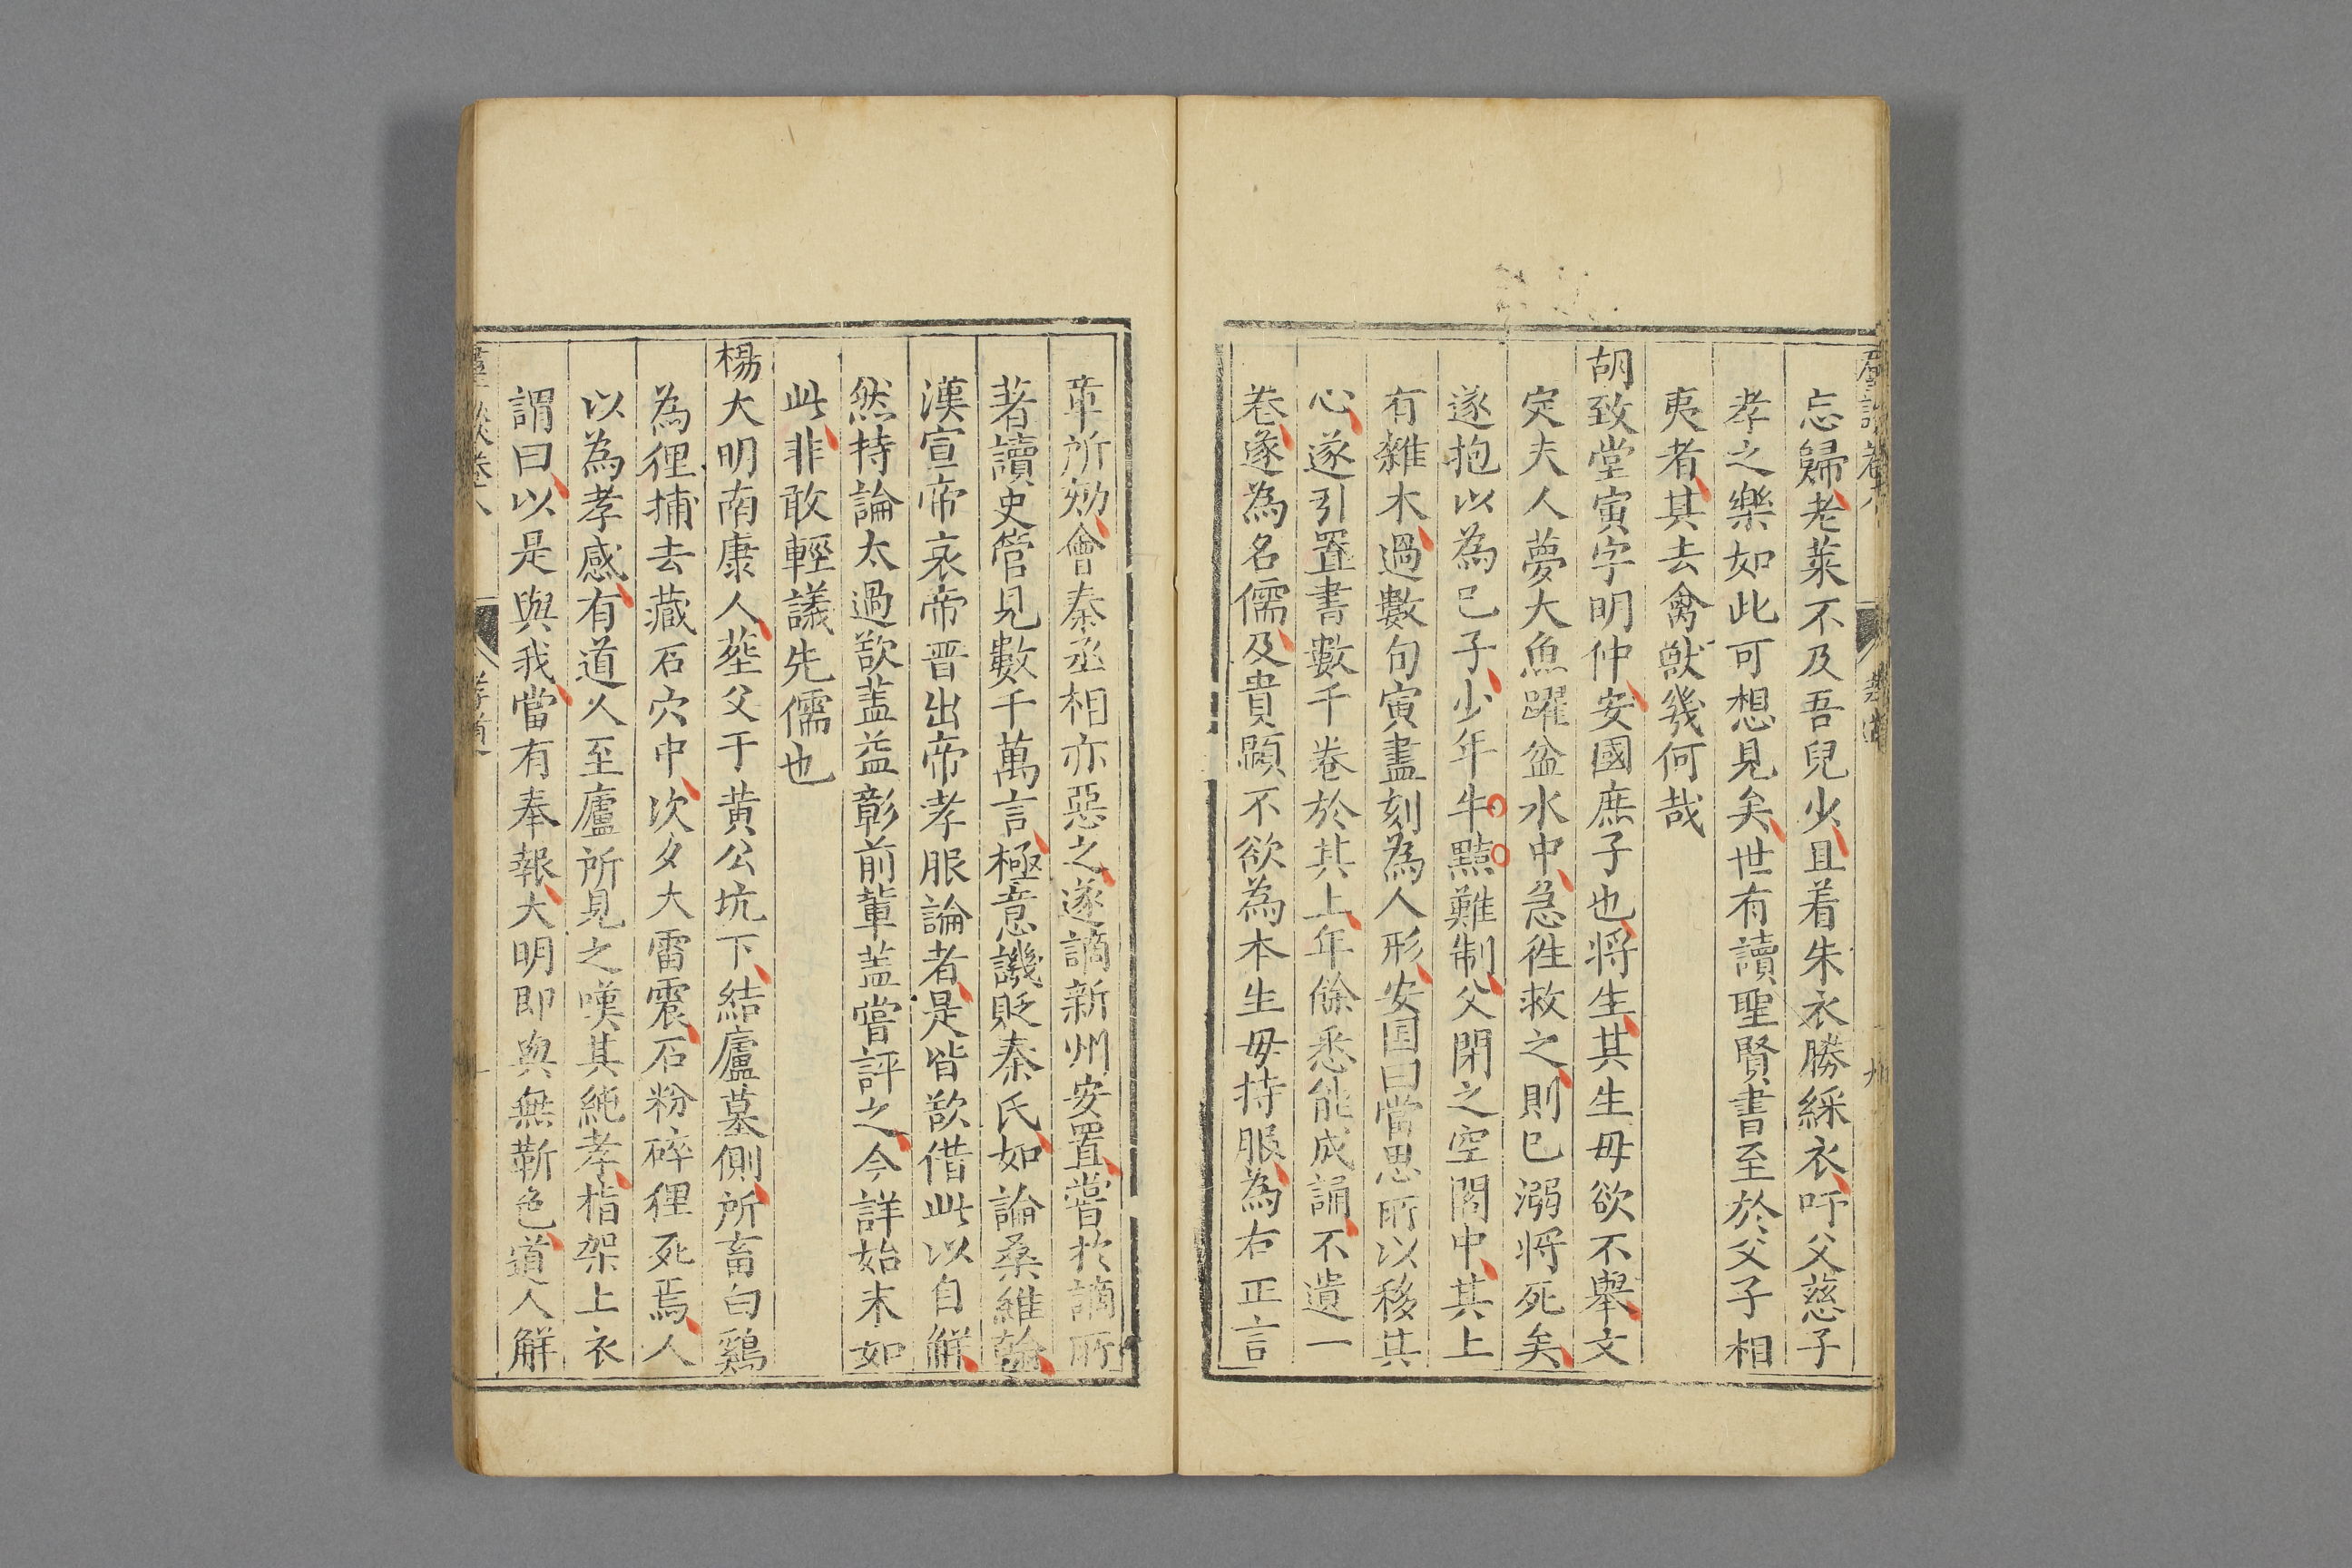 忘歸老萊不及吾兒少且着朱衣勝綵衣吁父慈子
孝之樂如此可想見矣世有讀聖賢書至於父子相
夷者其去禽獸幾何哉
胡致堂寅字明仲安國庶子也将生其生毋欲不舉文
定夫人夢大魚躍盆水中急徃救之則巳溺将死矣
遂抱以為巳子少年牛黠難制父閉之空閣中其上
有雜木過數句寅盡刻為人形安国曰當思所以移其
心遂引置書數千卷於其上年餘悉能成誦不遺一
卷遂為名儒及貴顯不欲為本生毋持服為右正言
章所劾會秦丞相亦惡之遂謫新州安置嘗於謫所
著讀史管見數千萬言極意譏貶秦氏如論桑維翰
漢宣帝哀帝晋出帝孝服論者是皆欲借此以自解
然持論太過欲盖益彰前輩盖嘗評之今詳始末如
此非敢輕議先儒也
楊大明南康人塟父于黄公坑下結廬墓側所畜白鷄
為狸捕去藏石穴中次夕大雷震石粉碎狸死焉人
以為孝感有道人至廬所見之嘆其純孝指架上衣
謂曰以是與我當有奉報大明即與無靳色道人解